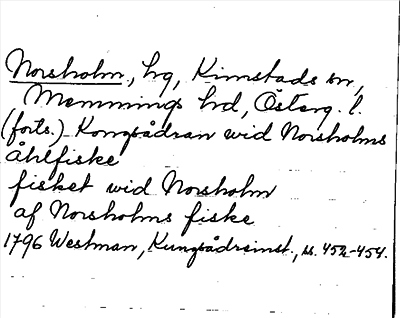 Norsholm, hg, Kimstads sn,
Memmings hd, Österg. l.
(forts.) Kongsådran wid Norsholms
åhlfiske
fisket wid Norsholm
af Norsholms fiske
1796 Westman, Kungsådreinst., s. 452-454.